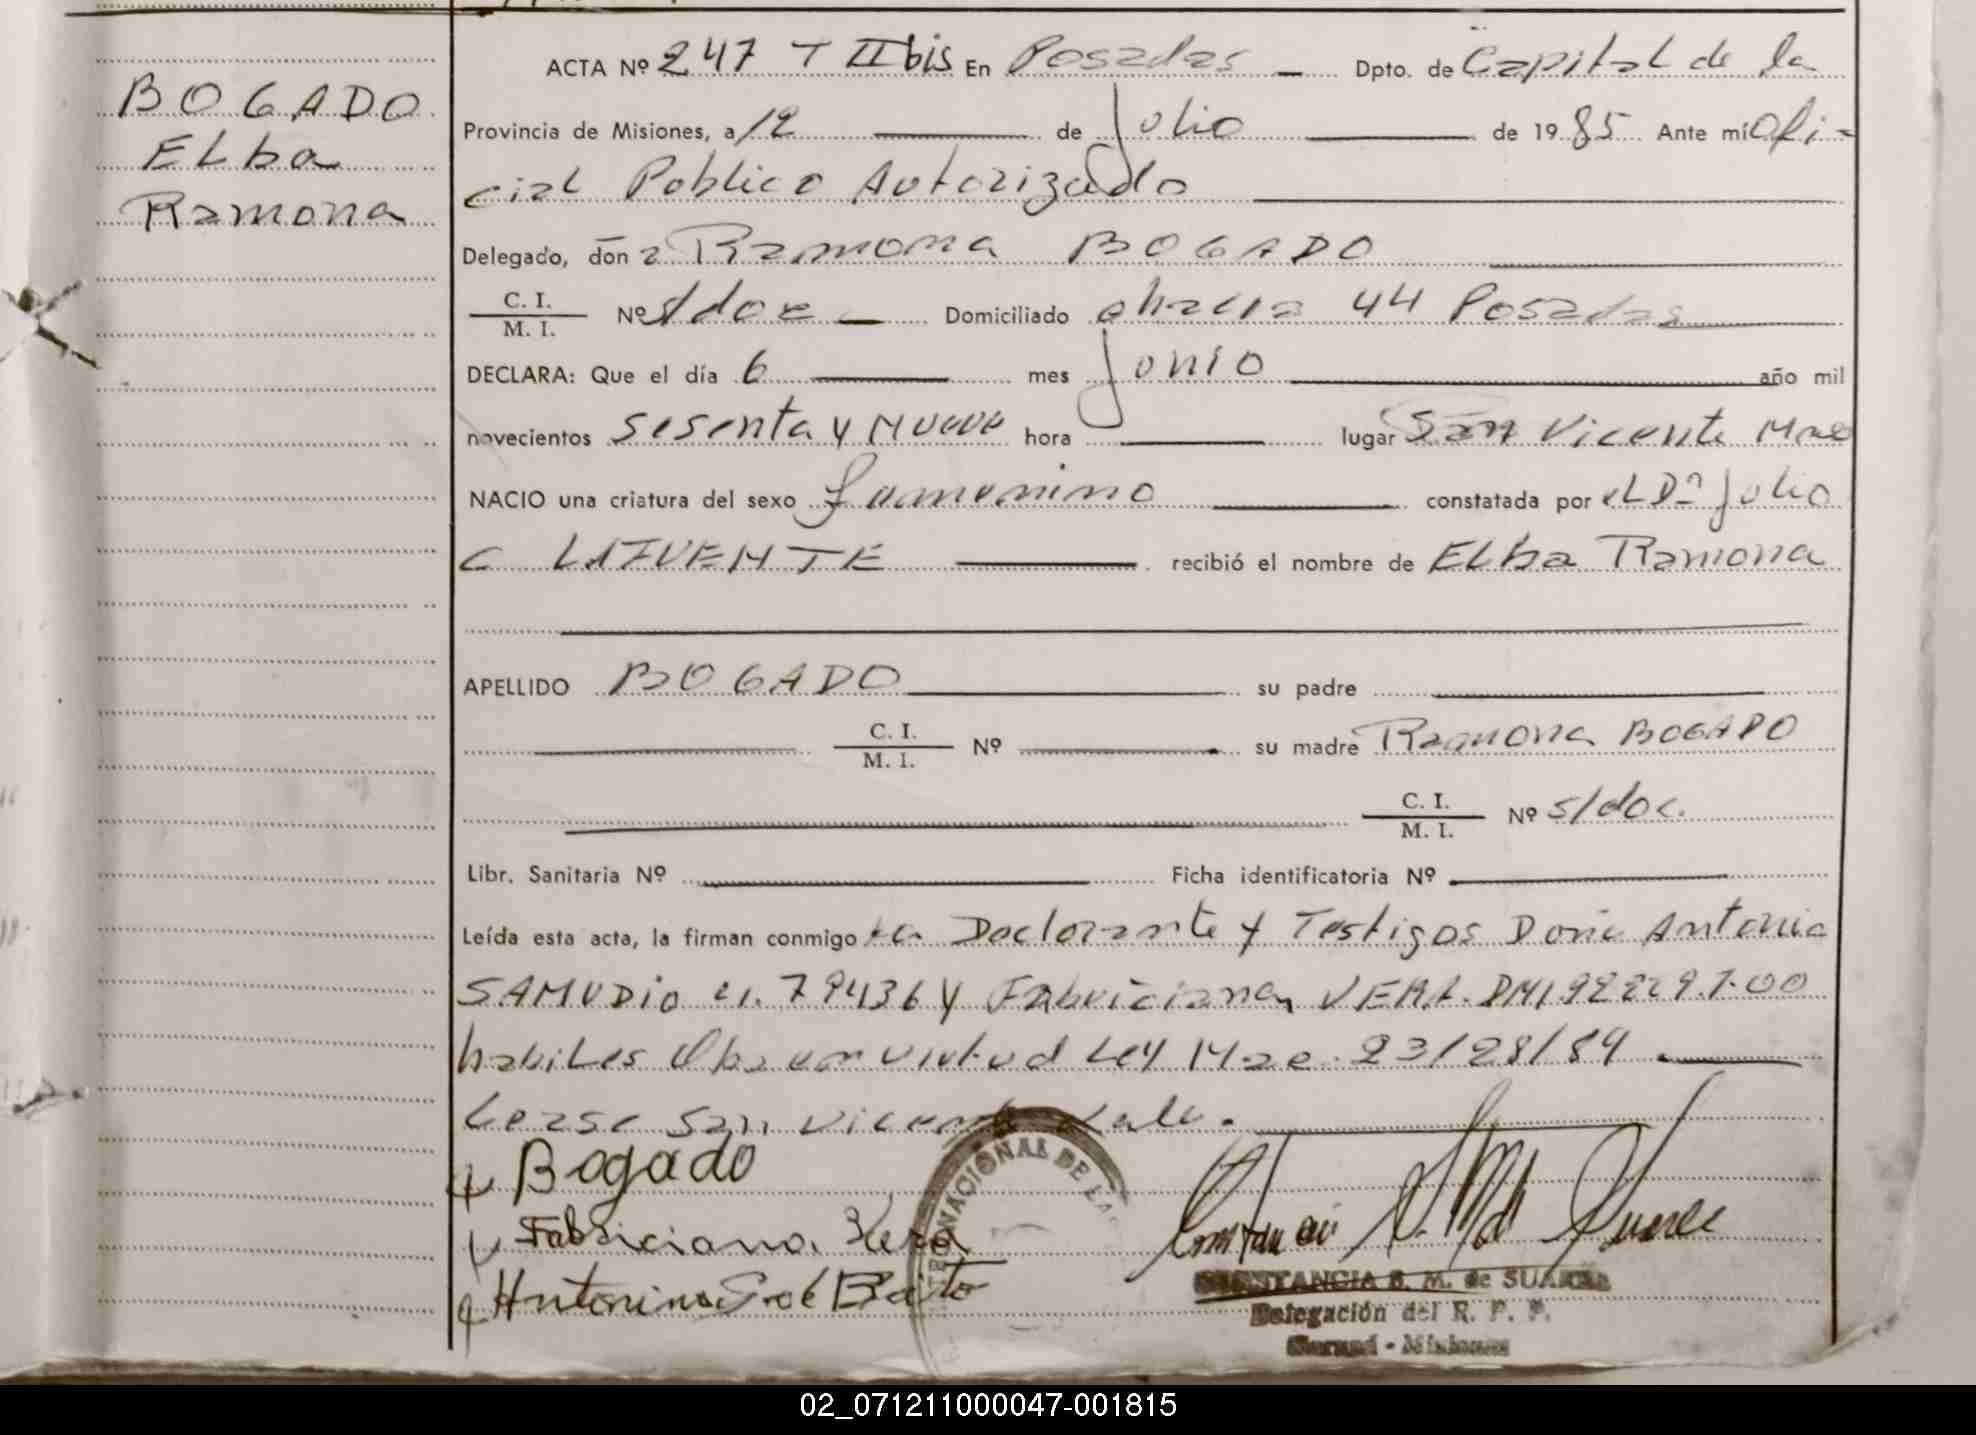 BOGADO
ELba
Ramona
ACTA Nº 247 T II bis En Posadas Dpto. de Capital de la
Provincia de Misiones, a 12 de Julio de 1985 Ante mí Ofi-
cial Publico Autorizado
Delegado, doña Ramona BOGADO
C. I. / M. I. Nº s/doc Domiciliado chacra 44 Posadas
DECLARA: Que el día 6 mes Junio año mil
novecientos sesenta y Nueve hora lugar San Vicente Mnes
NACIO una criatura del sexo femenino constatada por el Dr Julio
C LAFUENTE recibió el nombre de ELba Ramona
APELLIDO BOGADO su padre
C. I. / M. I. Nº su madre Ramona BOGADO
C. I. / M. I. Nº s/doc.
Libr. Sanitaria Nº Ficha identificatoria Nº
Leída esta acta, la firman conmigo La Declarante y Testigos Doña Antonia
SAMUDIO y Fabriciana VERA DNI
habiles Ley 23/28/84
Lease San Vicente vale.
Bogado
Fabriciana Vera
CONSTANCIA S. M. de SUAREZ
Delegación del R. P. P.
Garupá - Misiones
NACIONAL DE LAS
02_071211000047-001815